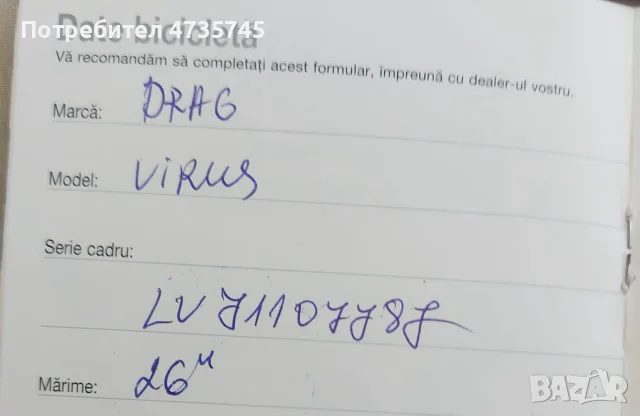 Потребител 4735745
Date bicicleta
Vă recomandăm să completați acest formular, împreună cu dealer-ul vostru.
Marcă: DRAG
Model: VIRUS
Serie cadru:
LV71107787
Mărime: 26"
BAZAR